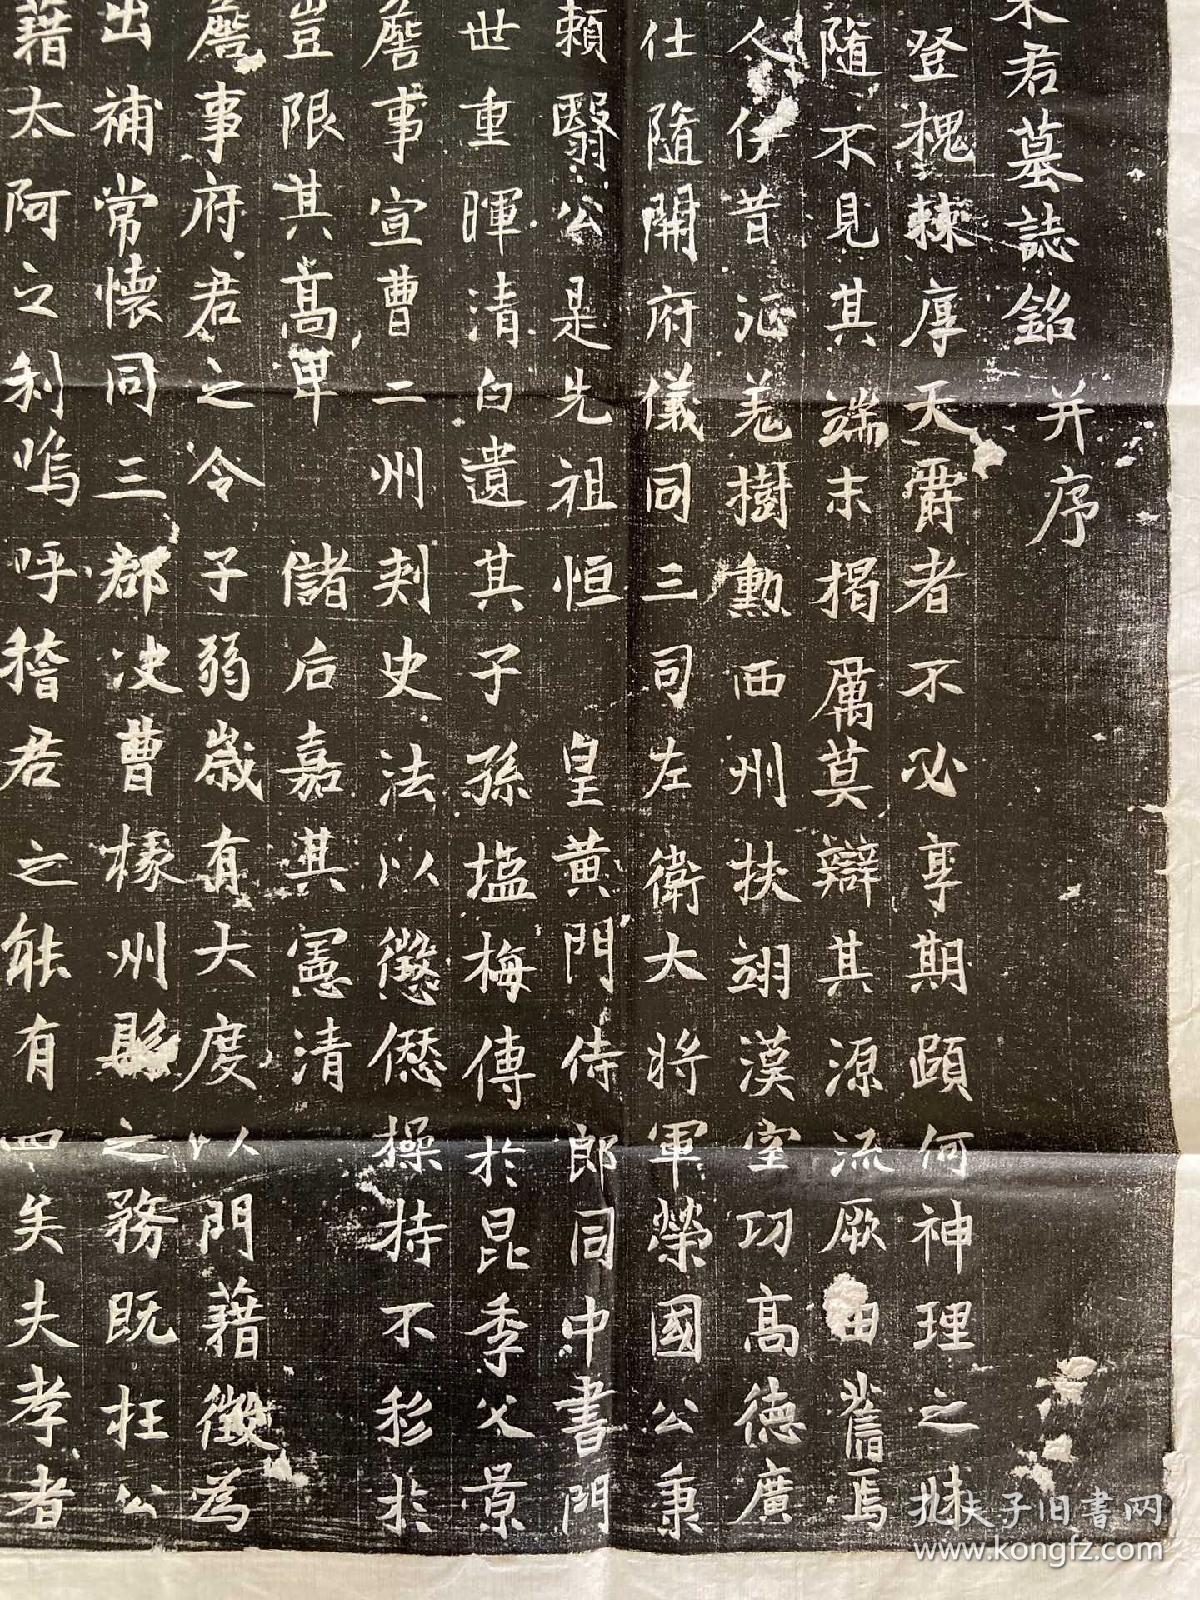 君墓誌銘 并序
登槐棘厚天爵者不必享期頤何神理之昧
隨不見其端末揭厲莫辯其源流厥由舊焉
人伊昔河羌樹勳西州扶翊漢室功高德廣
仕隨開府儀同三司左衛大將軍榮國公秉
賴翳公是先祖恒 皇黃門侍郎同中書門
世重暉清白遺其子孫塩梅傳於昆季父景
詹事宣曹二州刾史法以懲僁操持不移於
豈限其高卑 儲后嘉其憲清
詹事府君之令子弱歲有大度以門藉徵為
出補常懷同三郡決曹掾州縣之務既枉公
藉太阿之利嗚呼稽君之能有四矣夫孝者
孔夫子旧书网
www.kongfz.com